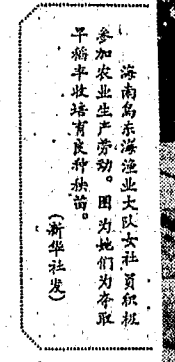 海南岛东海渔业大队女社员积极
参加农业生产劳动。图为她们为夺取
早稻丰收培育良种秧苗。
（新华社发）